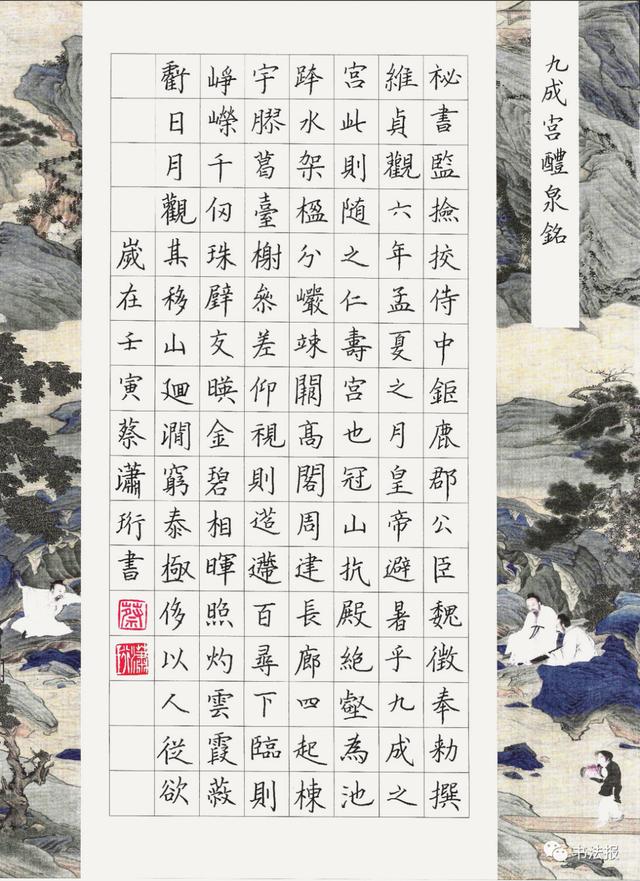 九成宮醴泉銘
祕書監撿挍侍中鉅鹿郡公臣魏徵奉勑撰
維貞觀六年孟夏之月皇帝避暑乎九成之
宮此則随之仁壽宮也冠山抗殿絶壑為池
跨水架楹分巖竦闕高閣周建長廊四起棟
宇膠葛臺榭叅差仰視則迢遰百尋下臨則
崢嶸千仞珠壁交暎金碧相暉照灼雲霞蔽
虧日月觀其移山廻澗窮泰極侈以人従欲
歲在壬寅蔡瀟珩書
蔡
瀟珩
书法报